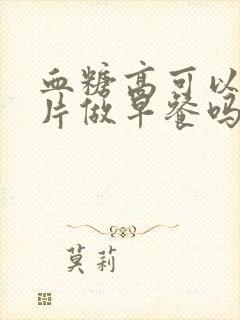 血糖高可以
片做早餐吗
莫莉